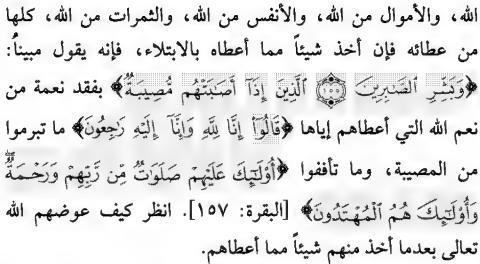 الله، والأموال من الله، والأنفس من الله، والثمرات من الله، كلها
من عطائه فإن أخذ شيئاً مما أعطاه بالابتلاء، فإنه يقول مبيناً:
﴿وَبَشِّرِ الصَّابِرِينَ ١٥٥ الَّذِينَ إِذَا أَصَابَتْهُم مُّصِيبَةٌ﴾ بفقد نعمة من
نعم الله التي أعطاهم إياها ﴿قَالُوا إِنَّا لِلَّهِ وَإِنَّا إِلَيْهِ رَاجِعُونَ﴾ ما تبرموا
من المصيبة، وما تأففوا ﴿أُولَٰئِكَ عَلَيْهِمْ صَلَوَاتٌ مِّن رَّبِّهِمْ وَرَحْمَةٌ ۖ
وَأُولَٰئِكَ هُمُ الْمُهْتَدُونَ﴾ [البقرة: ١٥٧]. انظر كيف عوضهم الله
تعالى بعدما أخذ منهم شيئاً مما أعطاهم.